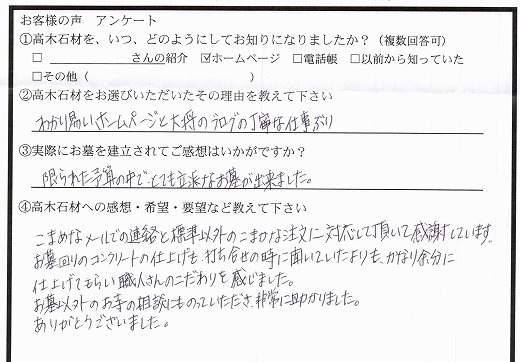 お客様の声 アンケート
①高木石材を、いつ、どのようにしてお知りになりましたか？（複数回答可）
□ さんの紹介 ☑ホームページ □電話帳 □以前から知っていた
□その他（ ）
②高木石材をお選びいただいたその理由を教えて下さい
わかり易いホームページと大将のブログの丁寧な仕事ぶり
③実際にお墓を建立されてご感想はいかがですか？
限られた予算の中で、とても立派なお墓が出来ました。
④高木石材への感想・希望・要望など教えて下さい
こまめなメールでの連絡と標準以外のこまかな注文に対応して頂いて感謝しています。
お墓回りのコンクリートの仕上げも、打ち合せの時に聞いていたよりも、かなり余分に
仕上げてもらい職人さんのこだわりを感じました。
お墓以外のお寺の相談にものっていただき、非常に助かりました。
ありがとうございました。